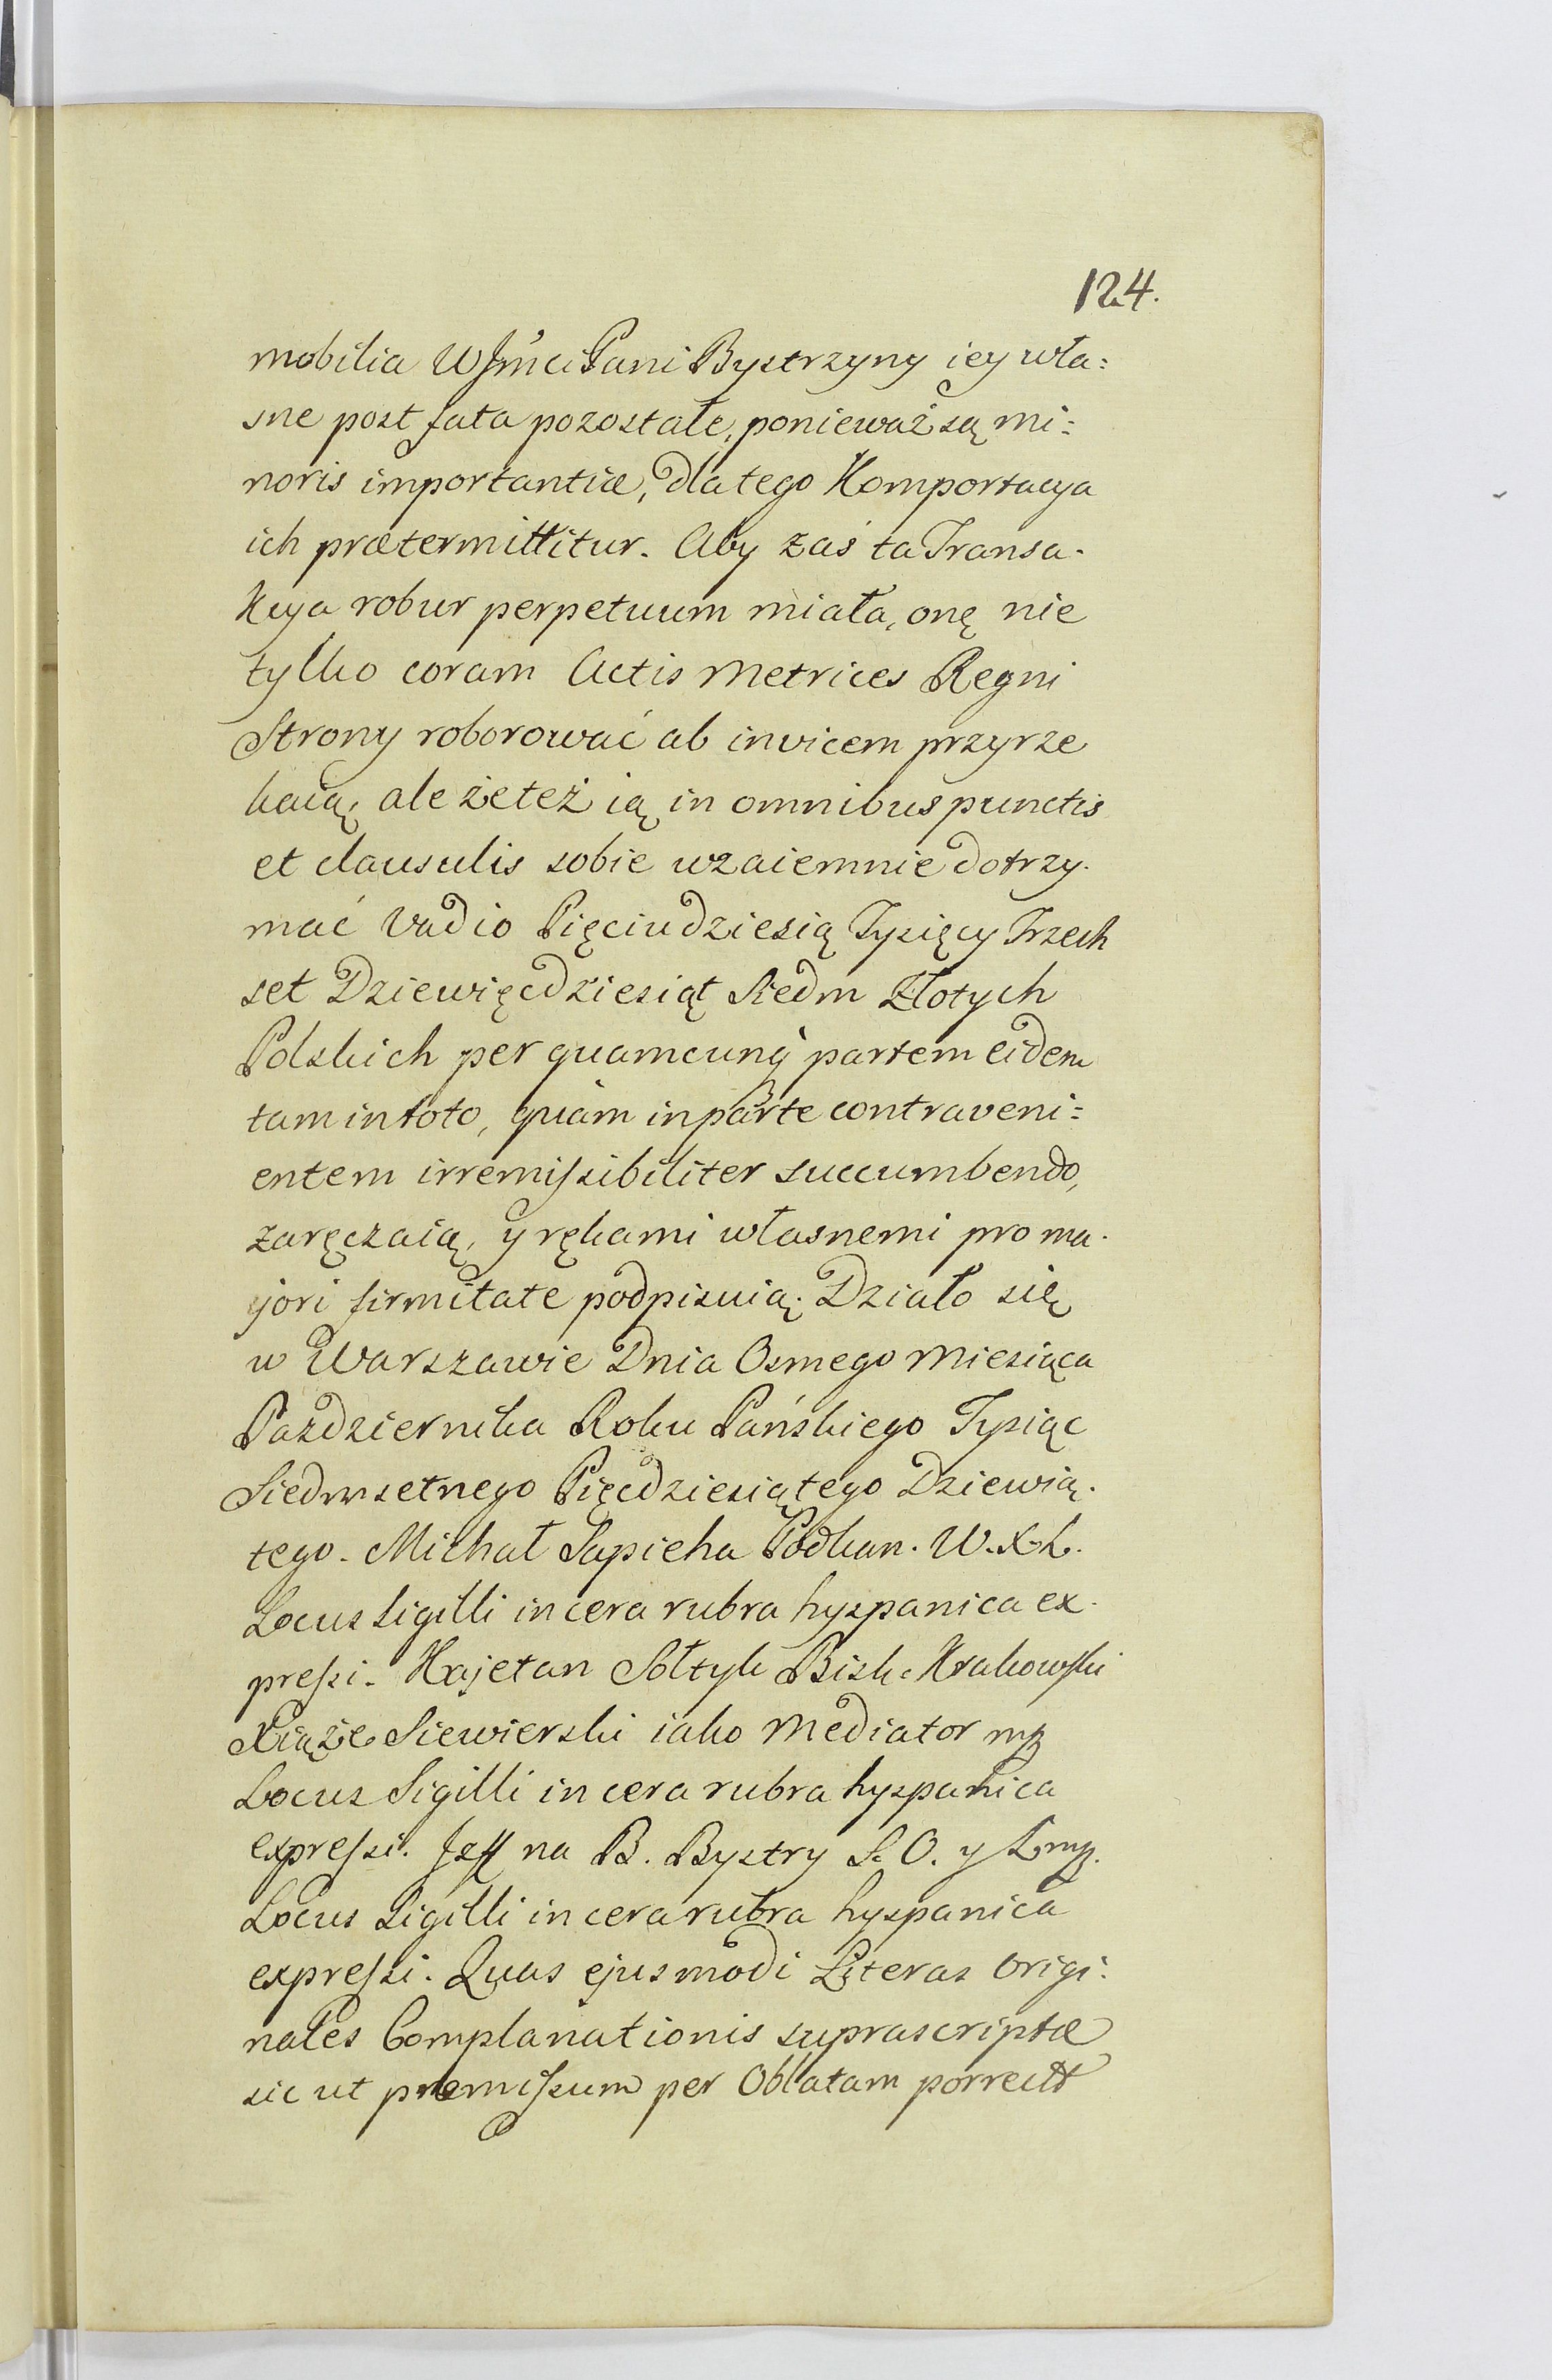 124.
mobilia WJmci Pani Bystrzyny iey wła=
sne post fata pozostałe, ponieważ są mi=
noris importantiæ, dla tego Komportacya
ich prætermittitur. Aby zaś ta Transa-
kcya robur perpetuum miała, onę nie
tylko coram Actis Metrices Regni
Strony roborować ab invicem przyrze
kaią, ale że też ią in omnibus punctis
et clausulis sobie wzaiemnie dotrzy-
mać Vadio Pięciudziesią Tysięcy Trzech
set Dziewięcdziesiąt Siedm Złotych
Polskich per quamcunq partem eidem
tam in toto, quàm in parte contraveni=
entem irremiſsibiliter succumbendo,
zaręczaią, y rękami własnemi pro ma-
jori firmitate podpisuią. Działo się
w Warszawie Dnia Osmego Miesiąca
Pazdziernika Roku Pańskiego Tysiąc
Siedmsetnego Pięcdziesiątego Dziewią-
tego. Michał Sapieha Podkan. W. X. L.
Locus Sigilli in cera rubra hyspanica ex-
preſsi. Kajetan Sołtyk Bisk. Krakowſki
Xiąże Siewierski iako Mediator mp
Locus Sigilli in cera rubra hyspanica
expreſsi. Jzff na B. Bystry S. O. y L mp.
Locus Sigilli in cera rubra hyspanica
expreſsi. Quas ejusmodi Literas Origi=
nales Complanationis suprascriptæ
sic ut præmiſsum per Oblatam porrectt